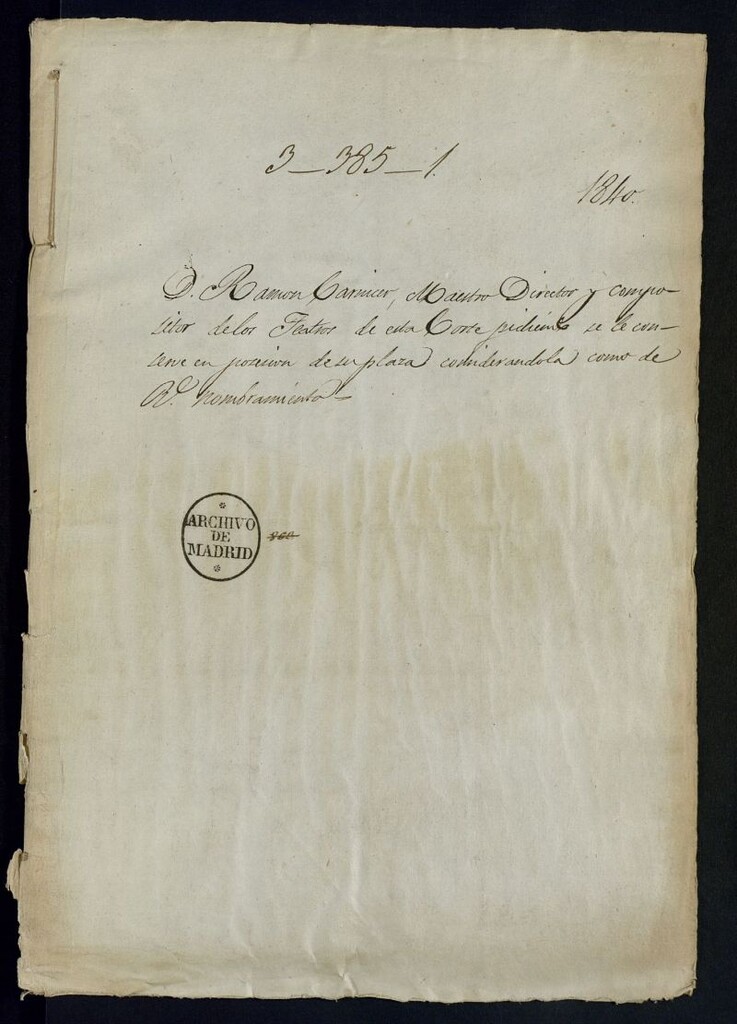 3_385_1.
1840.
D. Ramon Carnicer, Maestro Director y compo-
sitor de los Teatros de esta Corte pidiendo se le con-
serve en posesion de su plaza considerandola como de
Rl. nombramiento
ARCHIVO
DE
MADRID